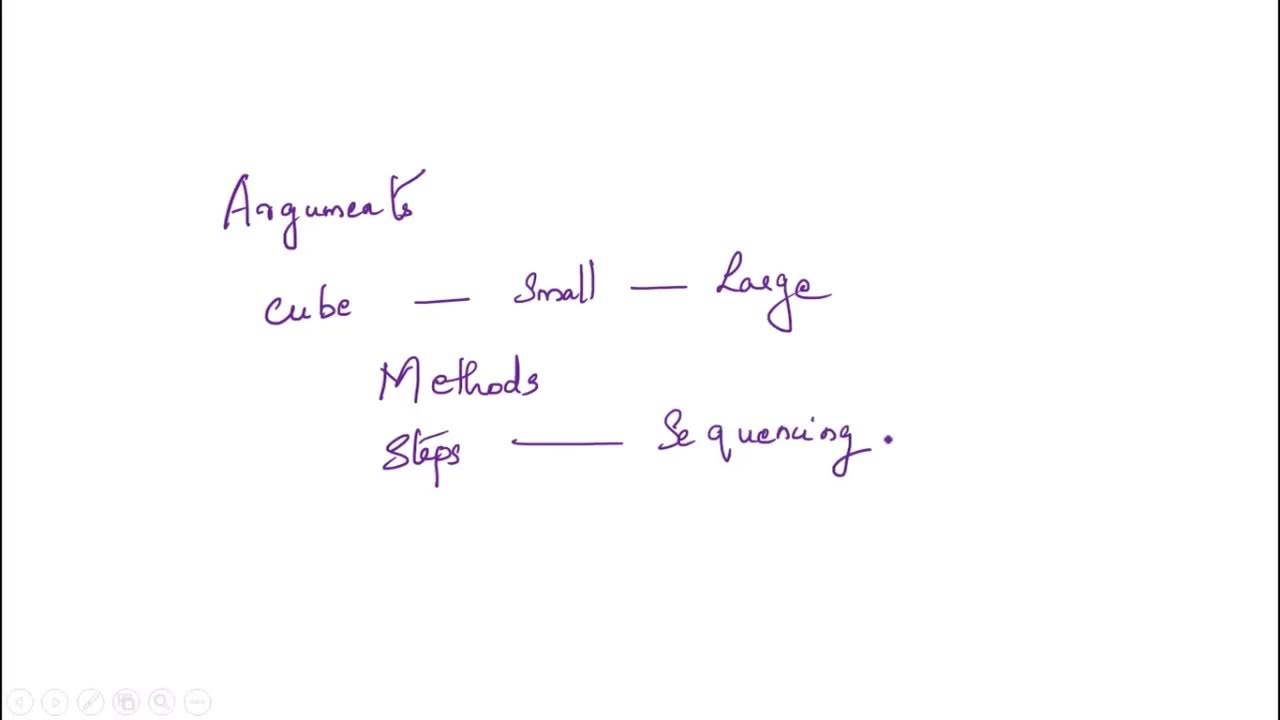 Arguments
Cube — Small — Large
Methods
Steps — Sequencing.